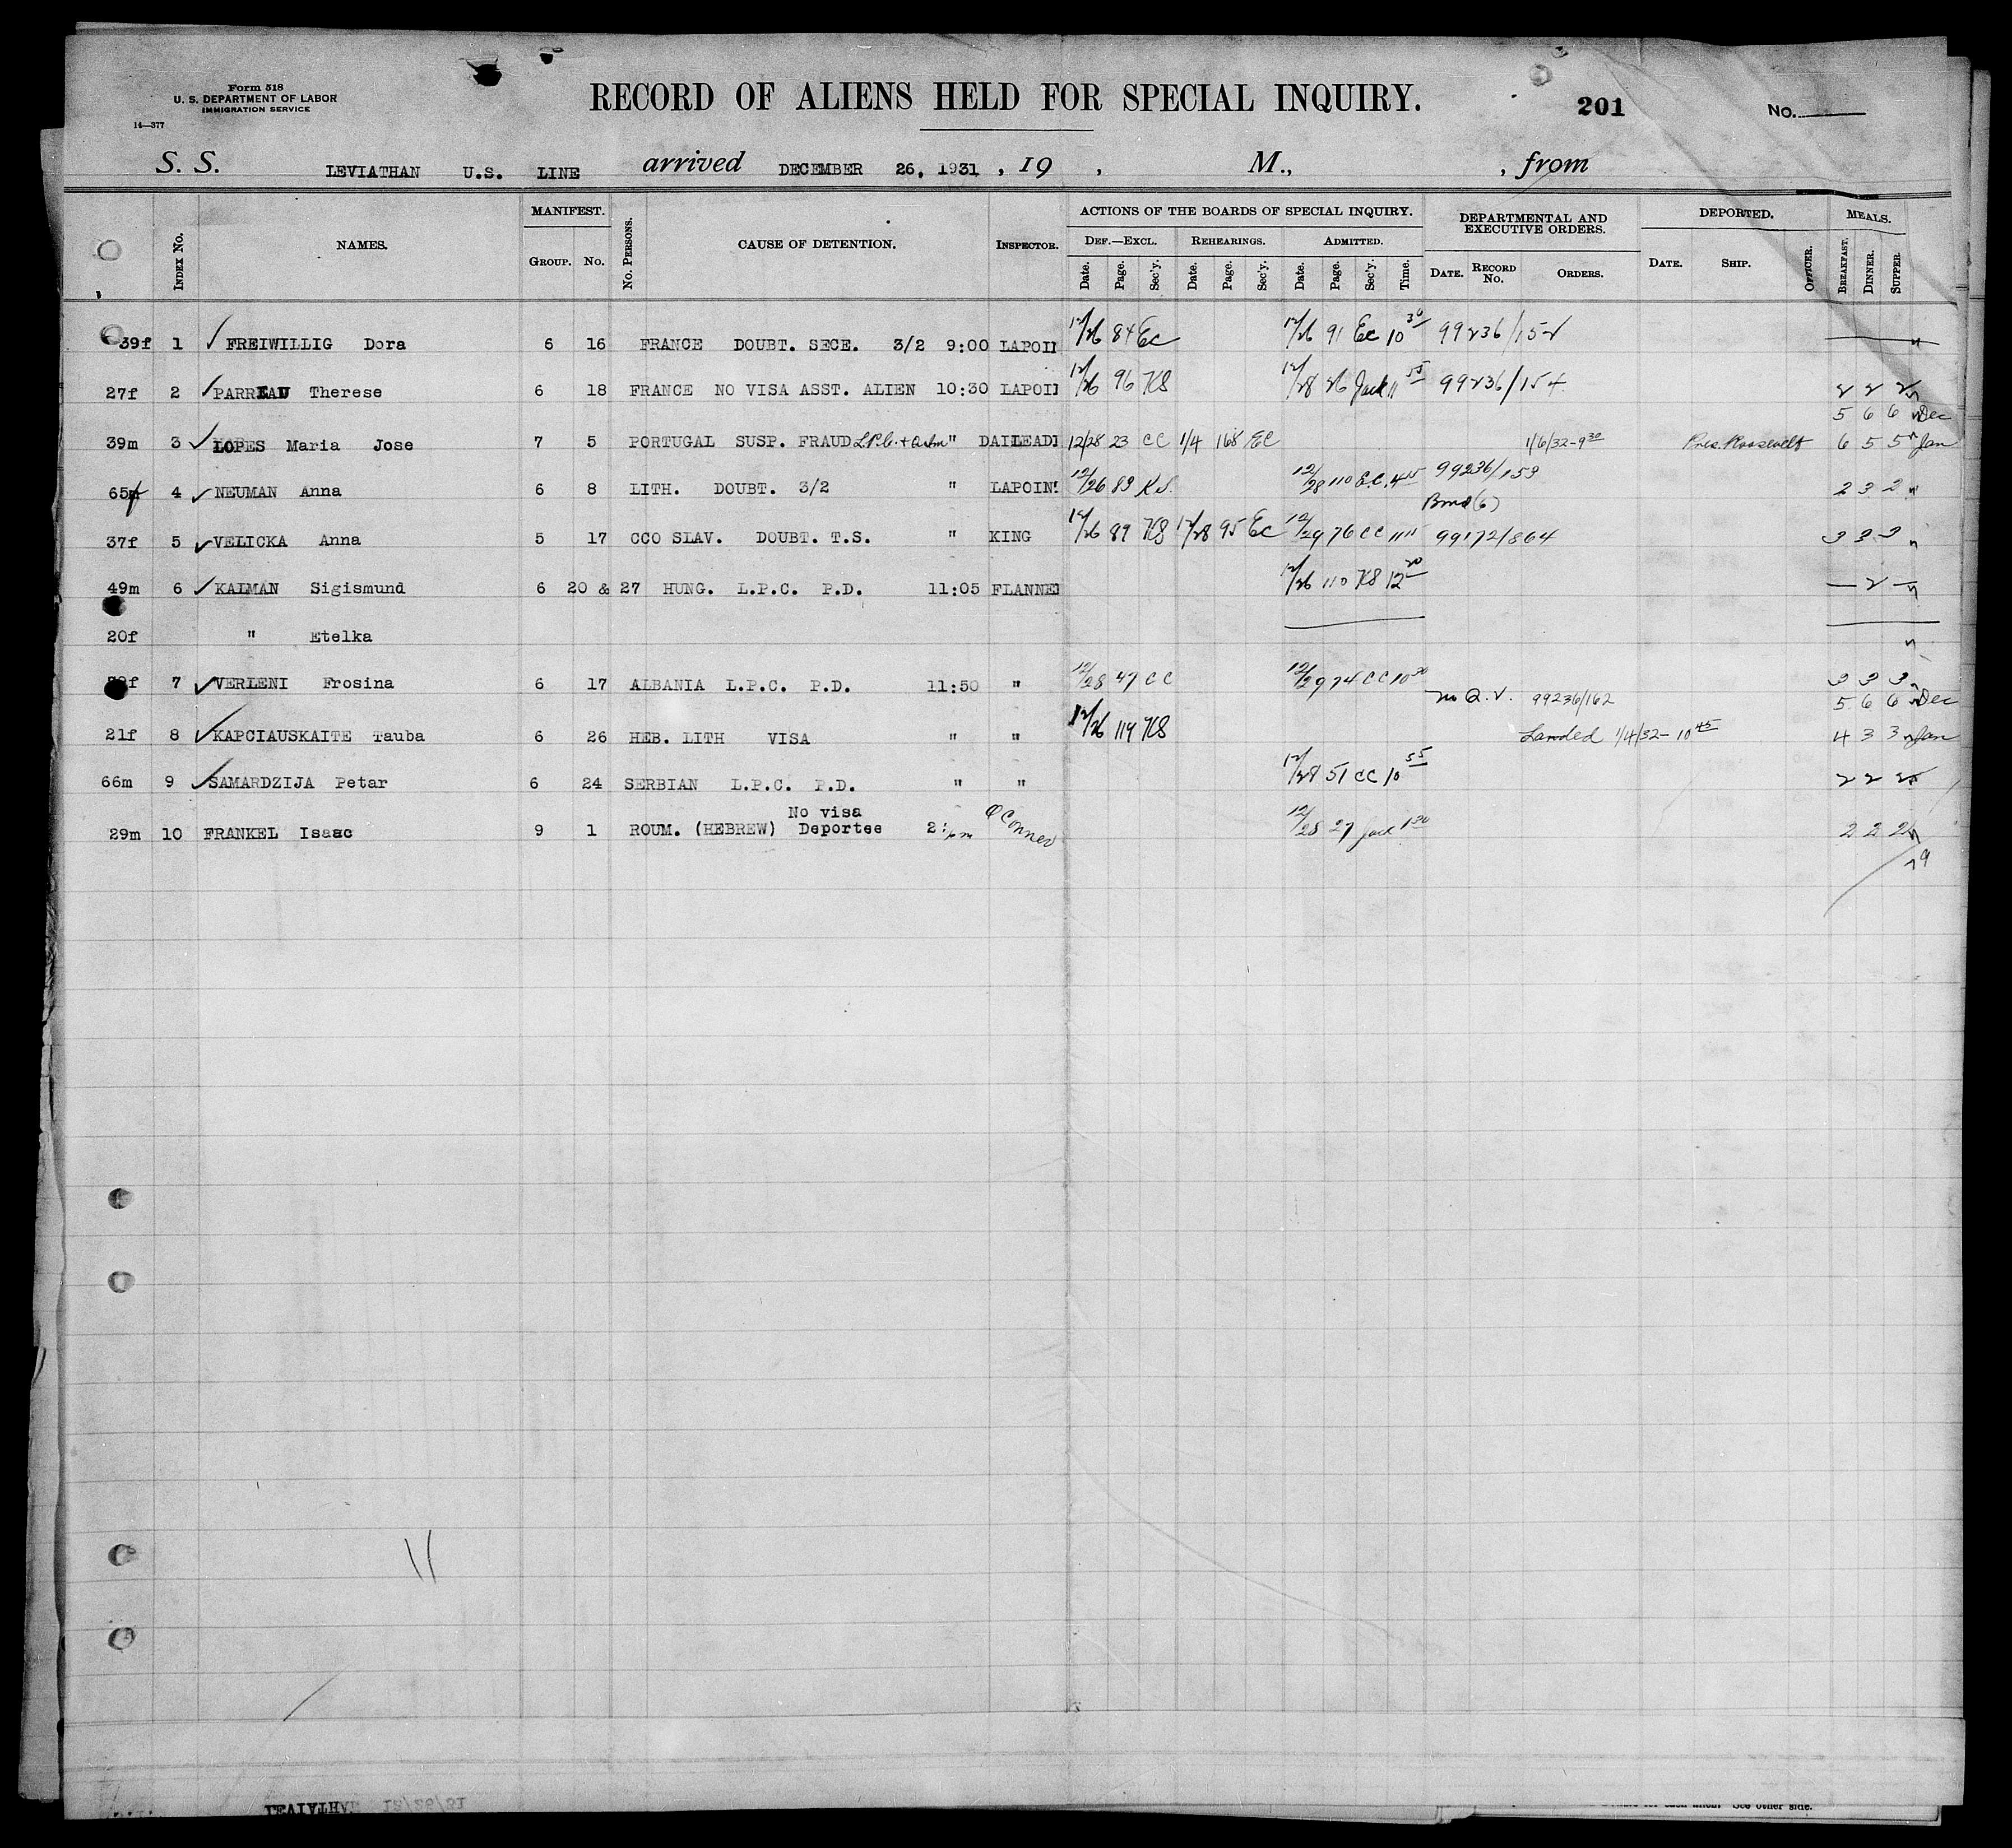 Form 518
U. S. DEPARTMENT OF LABOR
IMMIGRATION SERVICE
14—377
RECORD OF ALIENS HELD FOR SPECIAL INQUIRY.
201
No.
S. S. LEVIATHAN U.S. LINE arrived DECEMBER 26, 1931 , 19 , M., , from
INDEX No. NAMES. MANIFEST. GROUP. No. No. PERSONS. CAUSE OF DETENTION. INSPECTOR. ACTIONS OF THE BOARDS OF SPECIAL INQUIRY. DEF.—EXCL. Date. Page. Sec'y. REHEARINGS. Date. Page. Sec'y. ADMITTED. Date. Page. Sec'y. Time. DEPARTMENTAL AND EXECUTIVE ORDERS. DATE. RECORD No. ORDERS. DEPORTED. DATE. SHIP. OFFICER. MEALS. BREAKFAST. DINNER. SUPPER.
39f 1 FREIWILLIG Dora 6 16 FRANCE DOUBT. SECE. 3/2 9:00 LAPOI 12/26 84 EC 12/26 91 EC 10 30 99236/152
27f 2 PARREAU Therese 6 18 FRANCE NO VISA ASST. ALIEN 10:30 LAPOI 12/26 96 KS 12/28 26 Jack 11 55 99236/154 2 2 2
5 6 6 Dec
39m 3 LOPES Maria Jose 7 5 PORTUGAL SUSP. FRAUD L.P.C. + " DAILEAD 12/28 23 CC 1/4 168 EC 1/6/32-9 30 Pres. Roosevelt 6 5 5 Jan
65f 4 NEUMAN Anna 6 8 LITH. DOUBT. 3/2 " LAPOIN 12/26 89 K.S. 12/28 110 E.C. 4 15 99236/153 2 3 2
Bond (6)
37f 5 VELICKA Anna 5 17 CCO SLAV. DOUBT. T.S. " KING 12/26 89 KS 12/28 95 EC 12/29 76 CC 11 11 99172/864 3 3 3
49m 6 KALMAN Sigismund 6 20 & 27 HUNG. L.P.C. P.D. 11:05 FLANNE 12/26 110 KS 12 20 — 2 —
20f " Etelka
f 7 VERLENI Frosina 6 17 ALBANIA L.P.C. P.D. 11:50 " 12/28 47 CC 12/29 74 CC 10 30 3 3 3
no Q.V. 99236/162 5 6 6 Dec
21f 8 KAPCIAUSKAITE Tauba 6 26 HEB. LITH VISA " " 12/26 114 KS Landed 1/4/32-10 45 4 3 3 Jan
66m 9 SAMARDZIJA Petar 6 24 SERBIAN L.P.C. P.D. " " 12/28 51 CC 10 55 2 2 2
29m 10 FRANKEL Isaac 9 1 ROUM. (HEBREW) No visa Deportee 2: pm O'Connor 12/28 27 Jack 1 30 2 2 2
9
LEVIATHAN 12/26/31
See other side.